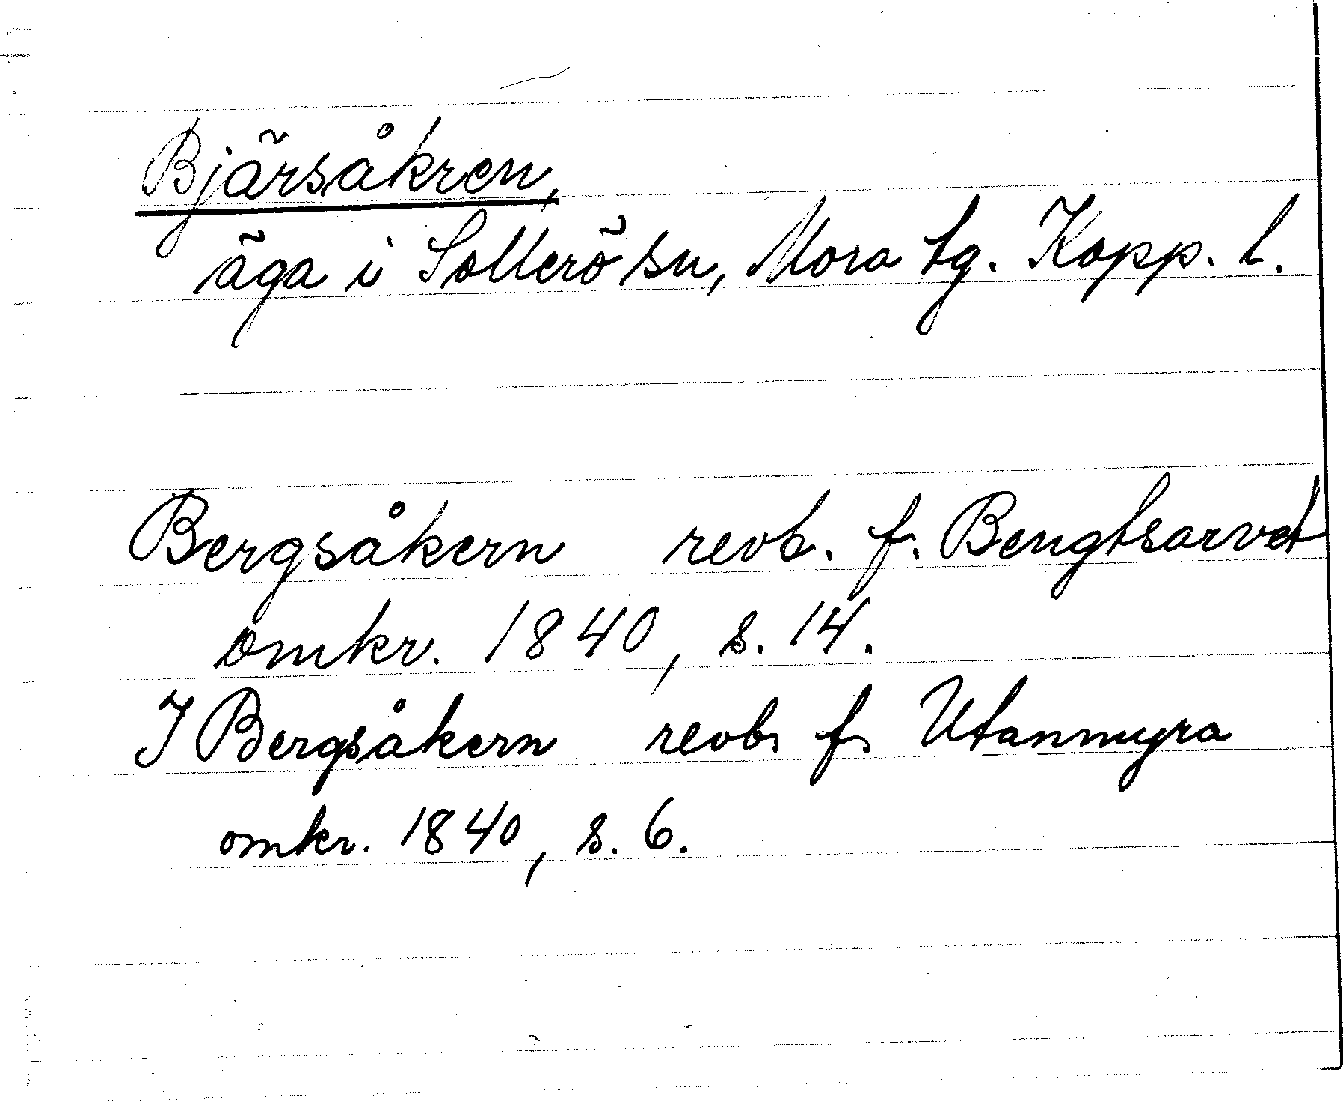 Bjärsåkren,
äga i Sollerö sn, Mora tg. Kopp. l.
Bergsåkern revb. f. Bengtsarvet
omkr. 1840, s. 14.
I Bergsåkern revb. f. Utanmyra
omkr. 1840, s. 6.